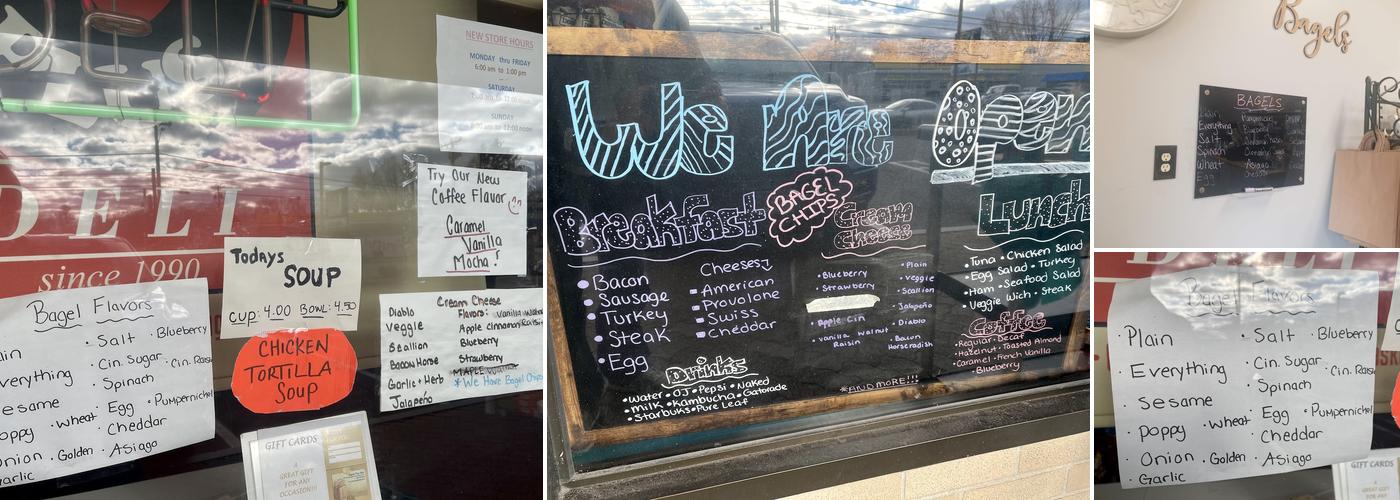 NEW STORE HOURS
MONDAY thru FRIDAY
6:00 am to 1:00 pm
SATURDAY
SUNDAY
12:00 noon
DELI
since 1990
Try Our New
Coffee Flavor
Caramel
Vanilla
Mocha!
Todays
SOUP
Cup: 4.00 Bowl: 4.50
CHICKEN
TORTILLA
SOUP
Bagel Flavors
Salt · Blueberry
Everything Cin. Sugar
Spinach
Sesame Egg · Pumpernickel
Poppy · Wheat · Cheddar
Onion · Golden · Asiago
Garlic
Cream Cheese
Flavors:
Diablo
Veggie Apple Cinnamon Raisin
Scallion Blueberry
Bacon Horse Strawberry
Garlic + Herb MAPLE Walnut
Jalapeño *We Have Bagel Chips
GIFT CARDS
A
GREAT GIFT
FOR ANY
OCCASION!!!
We Are Open
Breakfast
Bacon
Sausage
Turkey
Steak
Egg
Cheeses
American
Provolone
Swiss
Cheddar
BAGEL
CHIPS
Cream
Cheese
· Blueberry
· Strawberry
· Apple Cin
· Vanilla Walnut
Raisin
· Plain
· Veggie
· Scallion
· Jalapeño
· Diablo
· Bacon
Horseradish
Lunch
· Tuna · Chicken Salad
· Egg Salad · Turkey
· Ham · Seafood Salad
Veggie Wich · Steak
Coffee
Regular · Decaf
Hazelnut · Toasted Almond
Caramel · French Vanilla
· Blueberry
Drinks
· Water · OJ · Pepsi · Naked
· Milk · Kambucha · Gatorade
· Starbuks · Pure Leaf
*AND MORE!!!
Bagels
BAGELS
Everything
Salt
Spinach
Wheat Asiago
Egg Cheddar
Bagel Flavors
· Plain · Salt · Blueberry
· Everything · Cin. Sugar
· Spinach
· Sesame · Egg · Pumpernickel
· Poppy · Wheat · Cheddar
· Onion · Golden · Asiago
· Garlic
GIFT CARDS
A
GREAT GIFT